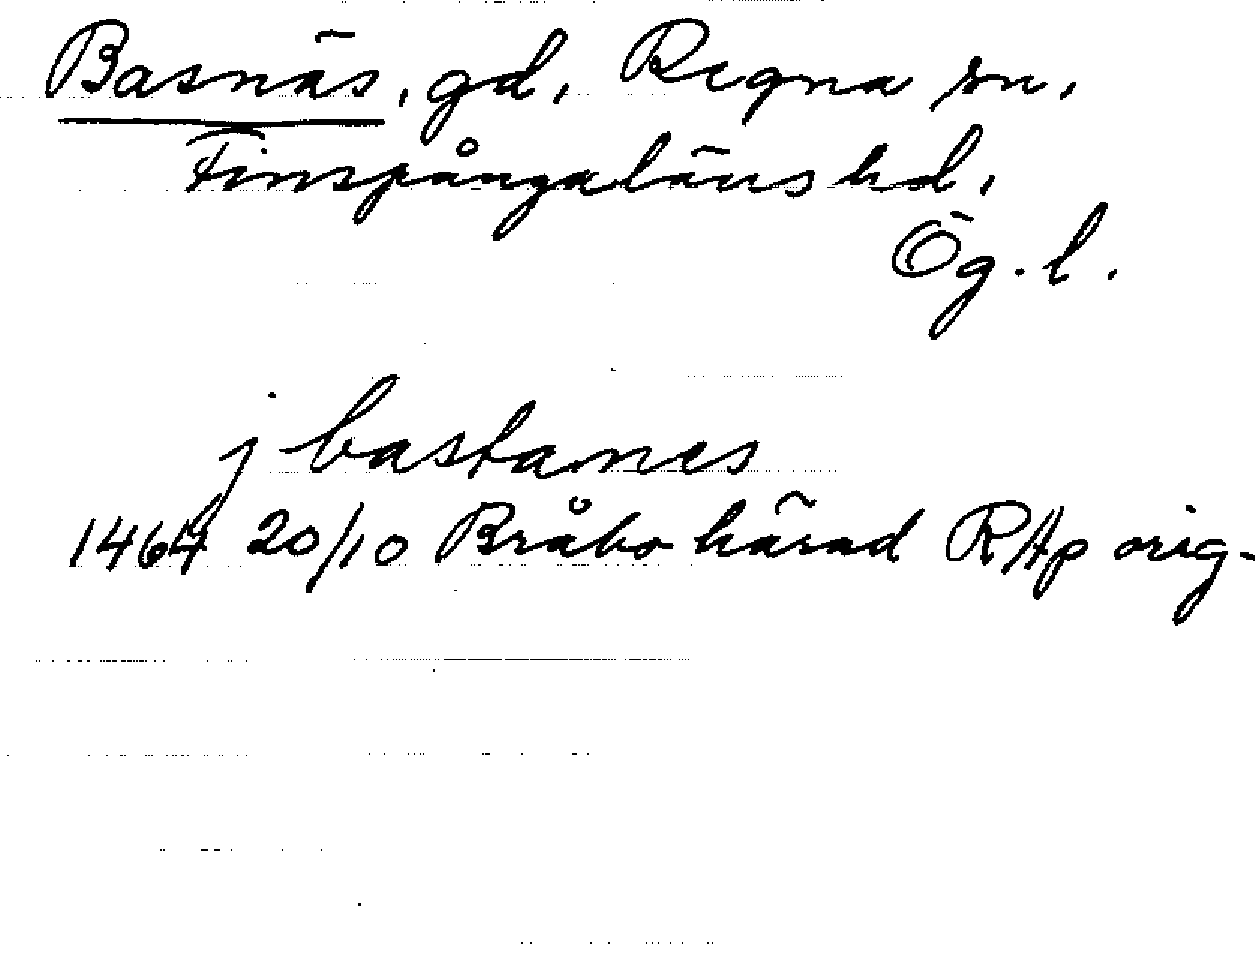 Basnäs, gd, Regna sn,
Finspångaläns hd,
Ög. l.
j bastanes
1464 20/10 Bråbo härad RAp orig-